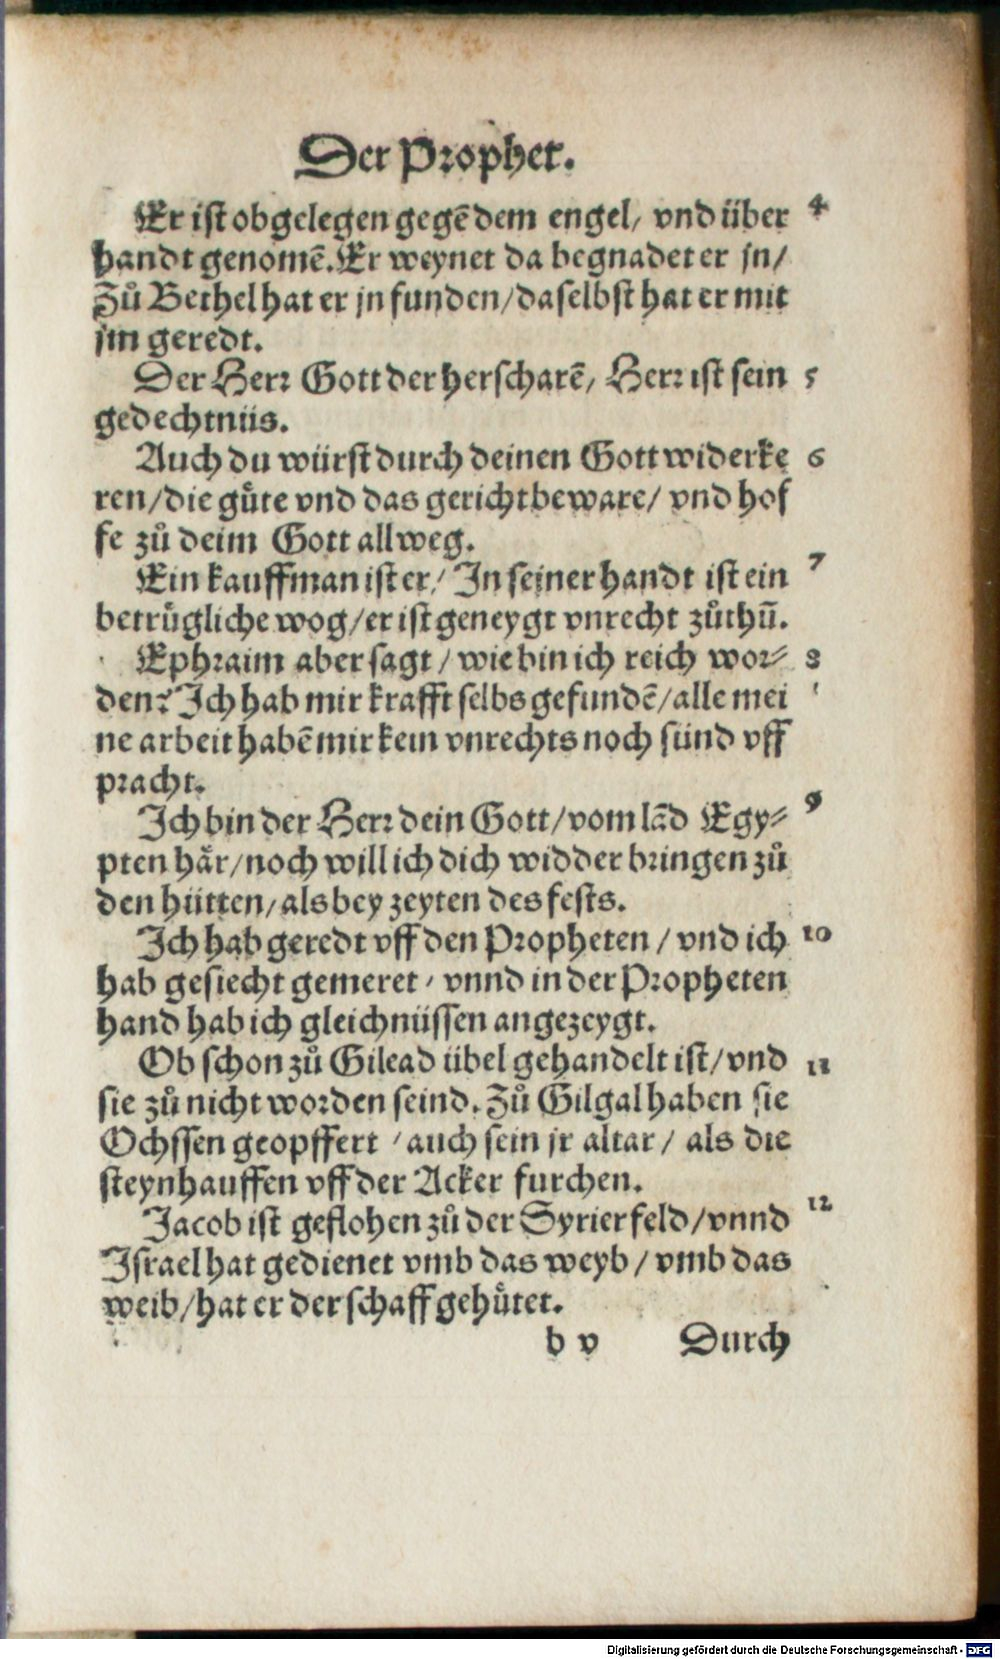 Der Prophet.
Er ist obgelegen gegē dem engel, vnd über 4
handt genomē. Er weynet da begnadet er jn/
Zů Bethel hat er jn funden/ daselbst hat er mit
jm geredt.
Der Herr Gott der herscharē, Herr ist sein 5
gedechtnüs.
Auch du würst durch deinen Gott widerke 6
ren/ die gůte vnd das gericht beware/ vnd hof
fe zů deim Gott allweg.
Ein kauffman ist er/ In seiner handt ist ein 7
betrůgliche wog/ er ist geneygt vnrecht zůthū.
Ephraim aber sagt/ wie bin ich reich wor⸗ 8
den? Ich hab mir krafft selbs gefundē/ alle mei
ne arbeit habē mir kein vnrechts noch sünd vff
pracht.
Ich bin der Herr dein Gott/ vom lād Egy⸗ 9
pten hår/ noch will ich dich widder bringen zů
den hütten/ als bey zeyten des fests.
Ich hab geredt vff den Propheten/ vnd ich 10
hab gesiecht gemeret/ vnnd in der Propheten
hand hab ich gleichnüssen angezeygt.
Ob schon zů Gilead übel gehandelt ist/ vnd 11
sie zů nicht worden seind. Zů Gilgal haben sie
Ochssen geopffert/ auch sein jr altar/ als die
steynhauffen vff der Acker furchen.
Jacob ist geflohen zů der Syrier feld/ vnnd 12
Israel hat gedienet vmb das weyb/ vmb das
weib/ hat er der schaff gehůtet.
b v Durch
Digitalisierung gefördert durch die Deutsche Forschungsgemeinschaft - DFG